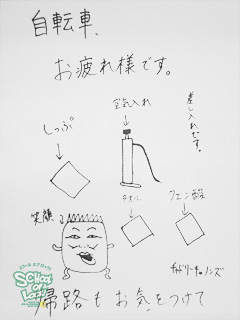 自転車、
お疲れ様です。
差し入れです。
空気入れ
しっぷ
タオル
クエン酸
笑顔
スクール オブ ロック!
SCHOOL OF LOCK!
帰路もお気をつけて